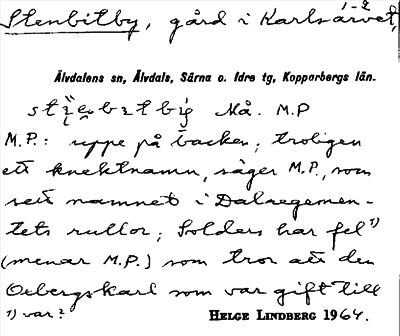 Stenbitby, gård i Karlsarvet,
1-2
Älvdalens sn, Älvdals, Särna o. Idre tg, Kopparbergs län.
Må. M.P
M.P.: uppe på backen; troligen
ett knektnamn, säger M.P., som
sett namnet i Dalregemen-
tets rullor; Solders har fel 1)
(menar M.P.) som tror att den
Orbergskarl som var gift till
1) var? HELGE LINDBERG 1964.